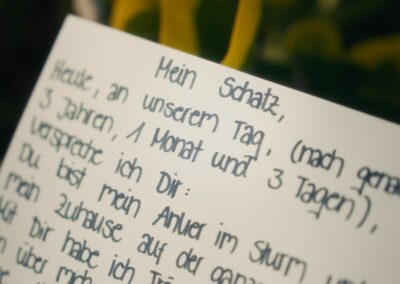 Mein Schatz,
Heute, an unserem Tag, (nach gena
3 Jahren, 1 Monat und 3 Tagen),
verspreche ich Dir:
Du bist mein Anker im Sturm und
mein Zuhause auf der ganz
Dir habe ich Trä
über mich